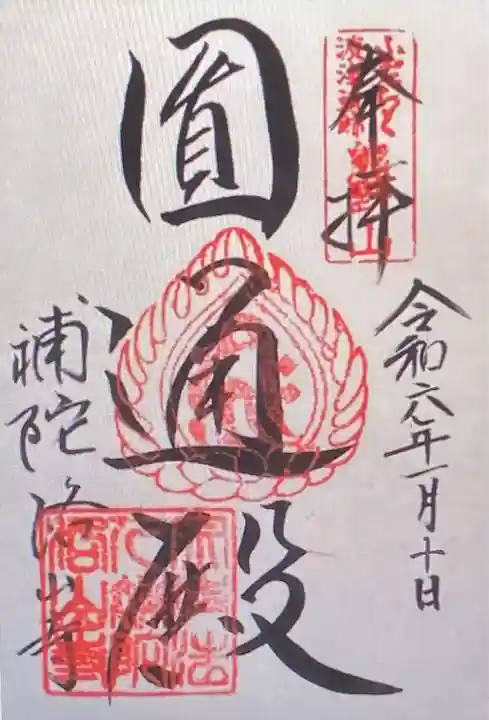 奉拝
令和六年一月十日
圓通殿
補陀洛山寺